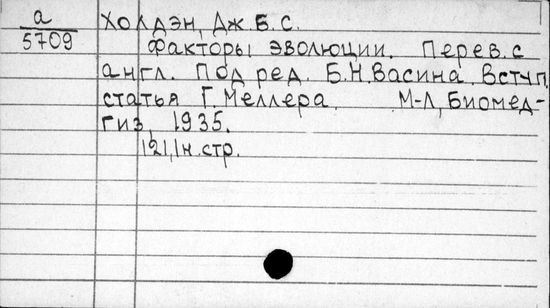 а
5709
Холдэн, Дж.Б.С.
Факторы эволюции. Перев. с
англ. Под ред. Б.Н.Васина. Вступ.
статья Г. Меллера. М-Л, Биомед-
гиз, 1935.
121,1н.стр.